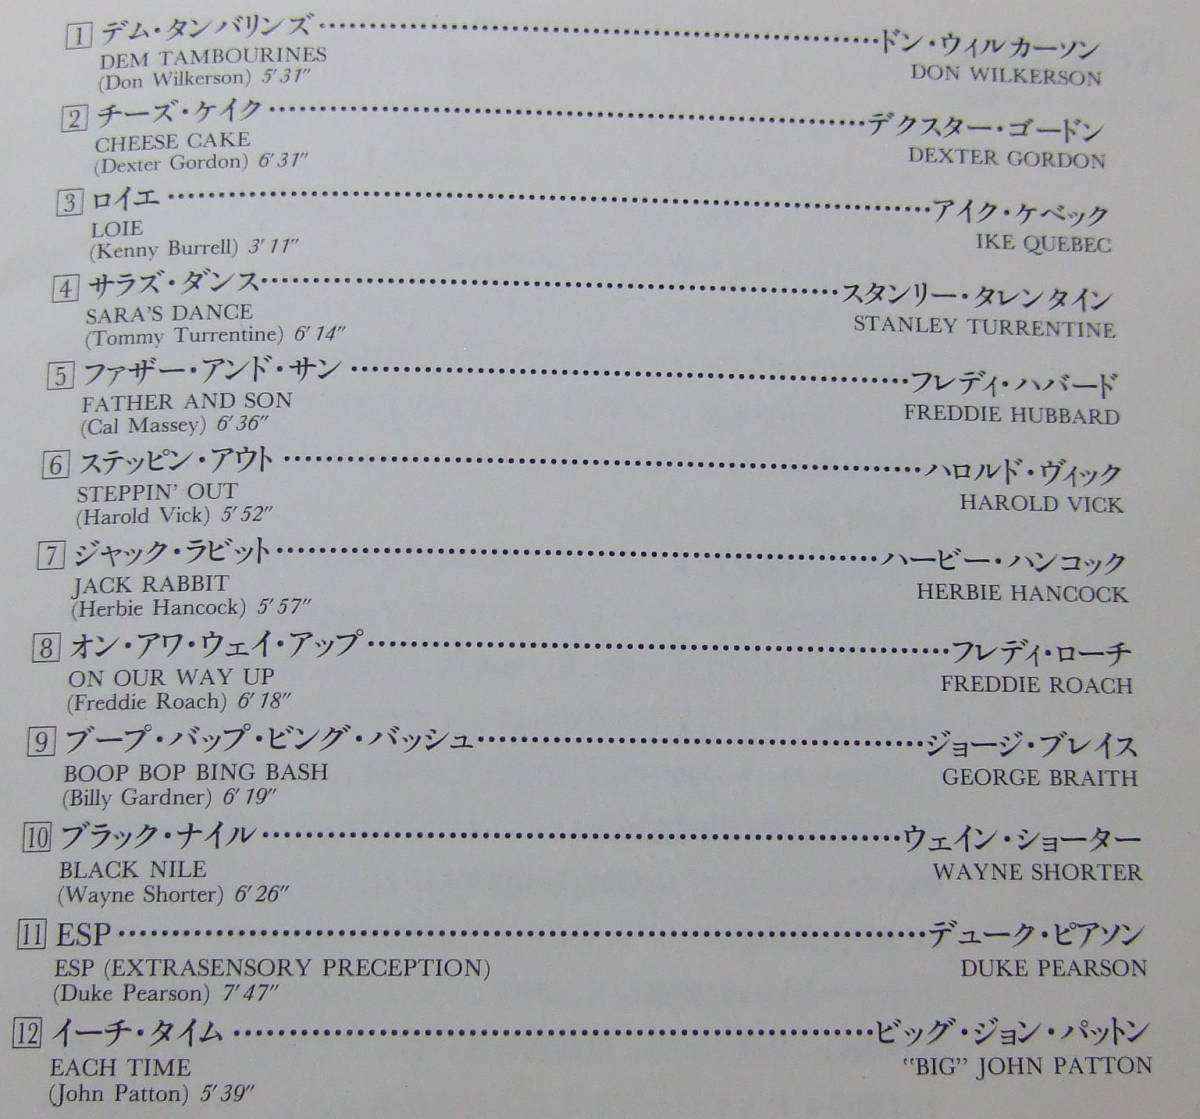 1 デム・タンバリンズ………ドン・ウィルカーソン
DEM TAMBOURINES DON WILKERSON
(Don Wilkerson) 5′31″
2 チーズ・ケイク………デクスター・ゴードン
CHEESE CAKE DEXTER GORDON
(Dexter Gordon) 6′31″
3 ロイエ………アイク・ケベック
LOIE IKE QUEBEC
(Kenny Burrell) 3′11″
4 サラズ・ダンス………スタンリー・タレンタイン
SARA'S DANCE STANLEY TURRENTINE
(Tommy Turrentine) 6′14″
5 ファザー・アンド・サン………フレディ・ハバード
FATHER AND SON FREDDIE HUBBARD
(Cal Massey) 6′36″
6 ステッピン・アウト………ハロルド・ヴィック
STEPPIN' OUT HAROLD VICK
(Harold Vick) 5′52″
7 ジャック・ラビット………ハービー・ハンコック
JACK RABBIT HERBIE HANCOCK
(Herbie Hancock) 5′57″
8 オン・アワ・ウェイ・アップ………フレディ・ローチ
ON OUR WAY UP FREDDIE ROACH
(Freddie Roach) 6′18″
9 ブープ・バップ・ビング・バッシュ………ジョージ・ブレイス
BOOP BOP BING BASH GEORGE BRAITH
(Billy Gardner) 6′19″
10 ブラック・ナイル………ウェイン・ショーター
BLACK NILE WAYNE SHORTER
(Wayne Shorter) 6′26″
11 ESP………デューク・ピアソン
ESP (EXTRASENSORY PRECEPTION) DUKE PEARSON
(Duke Pearson) 7′47″
12 イーチ・タイム………ビッグ・ジョン・パットン
EACH TIME "BIG" JOHN PATTON
(John Patton) 5′39″